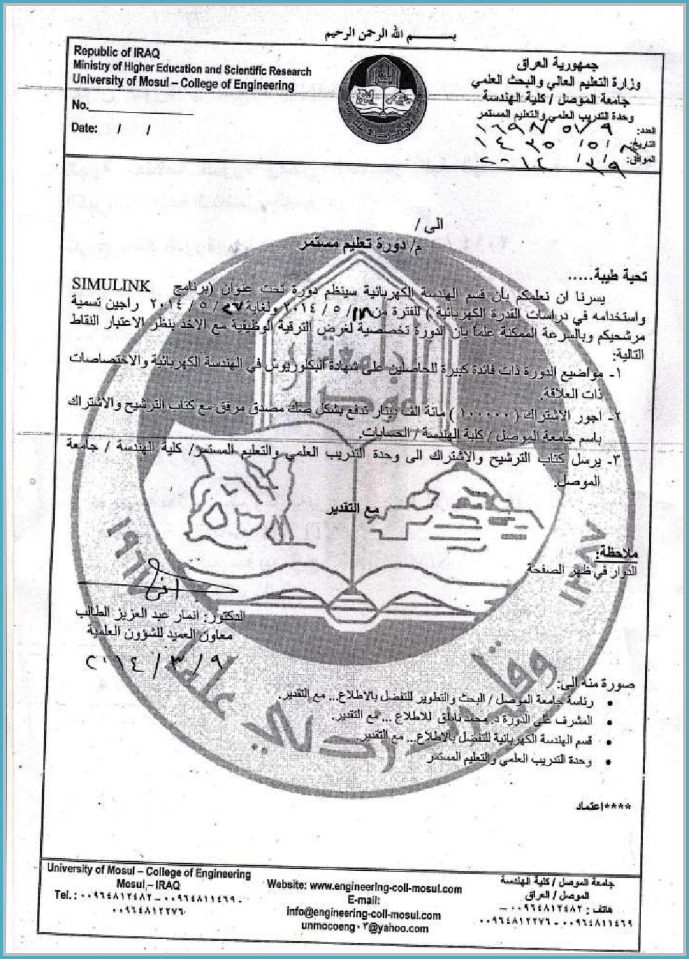 بسم الله الرحمن الرحيم
Republic of IRAQ
Ministry of Higher Education and Scientific Research
University of Mosul – College of Engineering
No.
Date: / /
جمهورية العراق
وزارة التعليم العالي والبحث العلمي
جامعة الموصل / كلية الهندسة
وحدة التدريب العلمي والتعليم المستمر
العدد:
التاريخ:
الموافق:
الى /
م/ دورة تعليم مستمر
تحية طيبة.....
يسرنا ان نعلمكم بأن قسم الهندسة الكهربائية سينظم دورة تحت عنوان (برنامج SIMULINK
واستخدامه في دراسات القدرة الكهربائية ) للفترة من / ٥ / ٢٠١٤ ولغاية / ٥ / ٢٠١٤ راجين تسمية
مرشحيكم وبالسرعة الممكنة علماً بأن الدورة تخصصية لغرض الترقية الوظيفية مع الاخذ بنظر الاعتبار النقاط
التالية:
١- مواضيع الدورة ذات فائدة كبيرة للحاصلين على شهادة البكلوريوش في الهندسة الكهربائية والاختصاصات
ذات العلاقة.
٢- اجور الاشتراك ( ١٠٠٠٠٠ ) مائة الف دينار تدفع بشكل صك مصدق مرفق مع كتاب الترشيح والاشتراك
باسم جامعة الموصل / كلية الهندسة / الحسابات.
٣- يرسل كتاب الترشيح والاشتراك الى وحدة التدريب العلمي والتعليم المستمر/ كلية الهندسة / جامعة
الموصل.
مع التقدير
ملاحظة:
الدوار في ظهر الصفحة
الدكتور: انمار عبد العزيز الطالب
معاون العميد للشؤون العلمية
٢٠١٤/٣/٩
صورة منه الى:
• رئاسة جامعة الموصل / البحث والتطوير للتفضل بالاطلاع... مع التقدير.
• المشرف على الدورة د. محمد للاطلاع ... مع التقدير.
• قسم الهندسة الكهربائية للتفضل بالاطلاع... مع التقدير.
• وحدة التدريب العلمي والتعليم المستمر
****اعتماد
University of Mosul – College of Engineering
Mosul – IRAQ
Tel. : ٠٠٩٦٤٨١٢٤٨٢ – ٠٠٩٦٤٨١١٤٦٩ -
٠٠٩٦٤٨١٢٢٧٦
Website: www.engineering-coll-mosul.com
E-mail:
info@engineering-coll-mosul.com
unmocoeng٠٢@yahoo.com
جامعة الموصل / كلية الهندسة
الموصل / العراق
هاتف : ٠٠٩٦٤٨١٢٤٨٢ –
٠٠٩٦٤٨١١٤٦٩ – ٠٠٩٦٤٨١٢٢٧٦